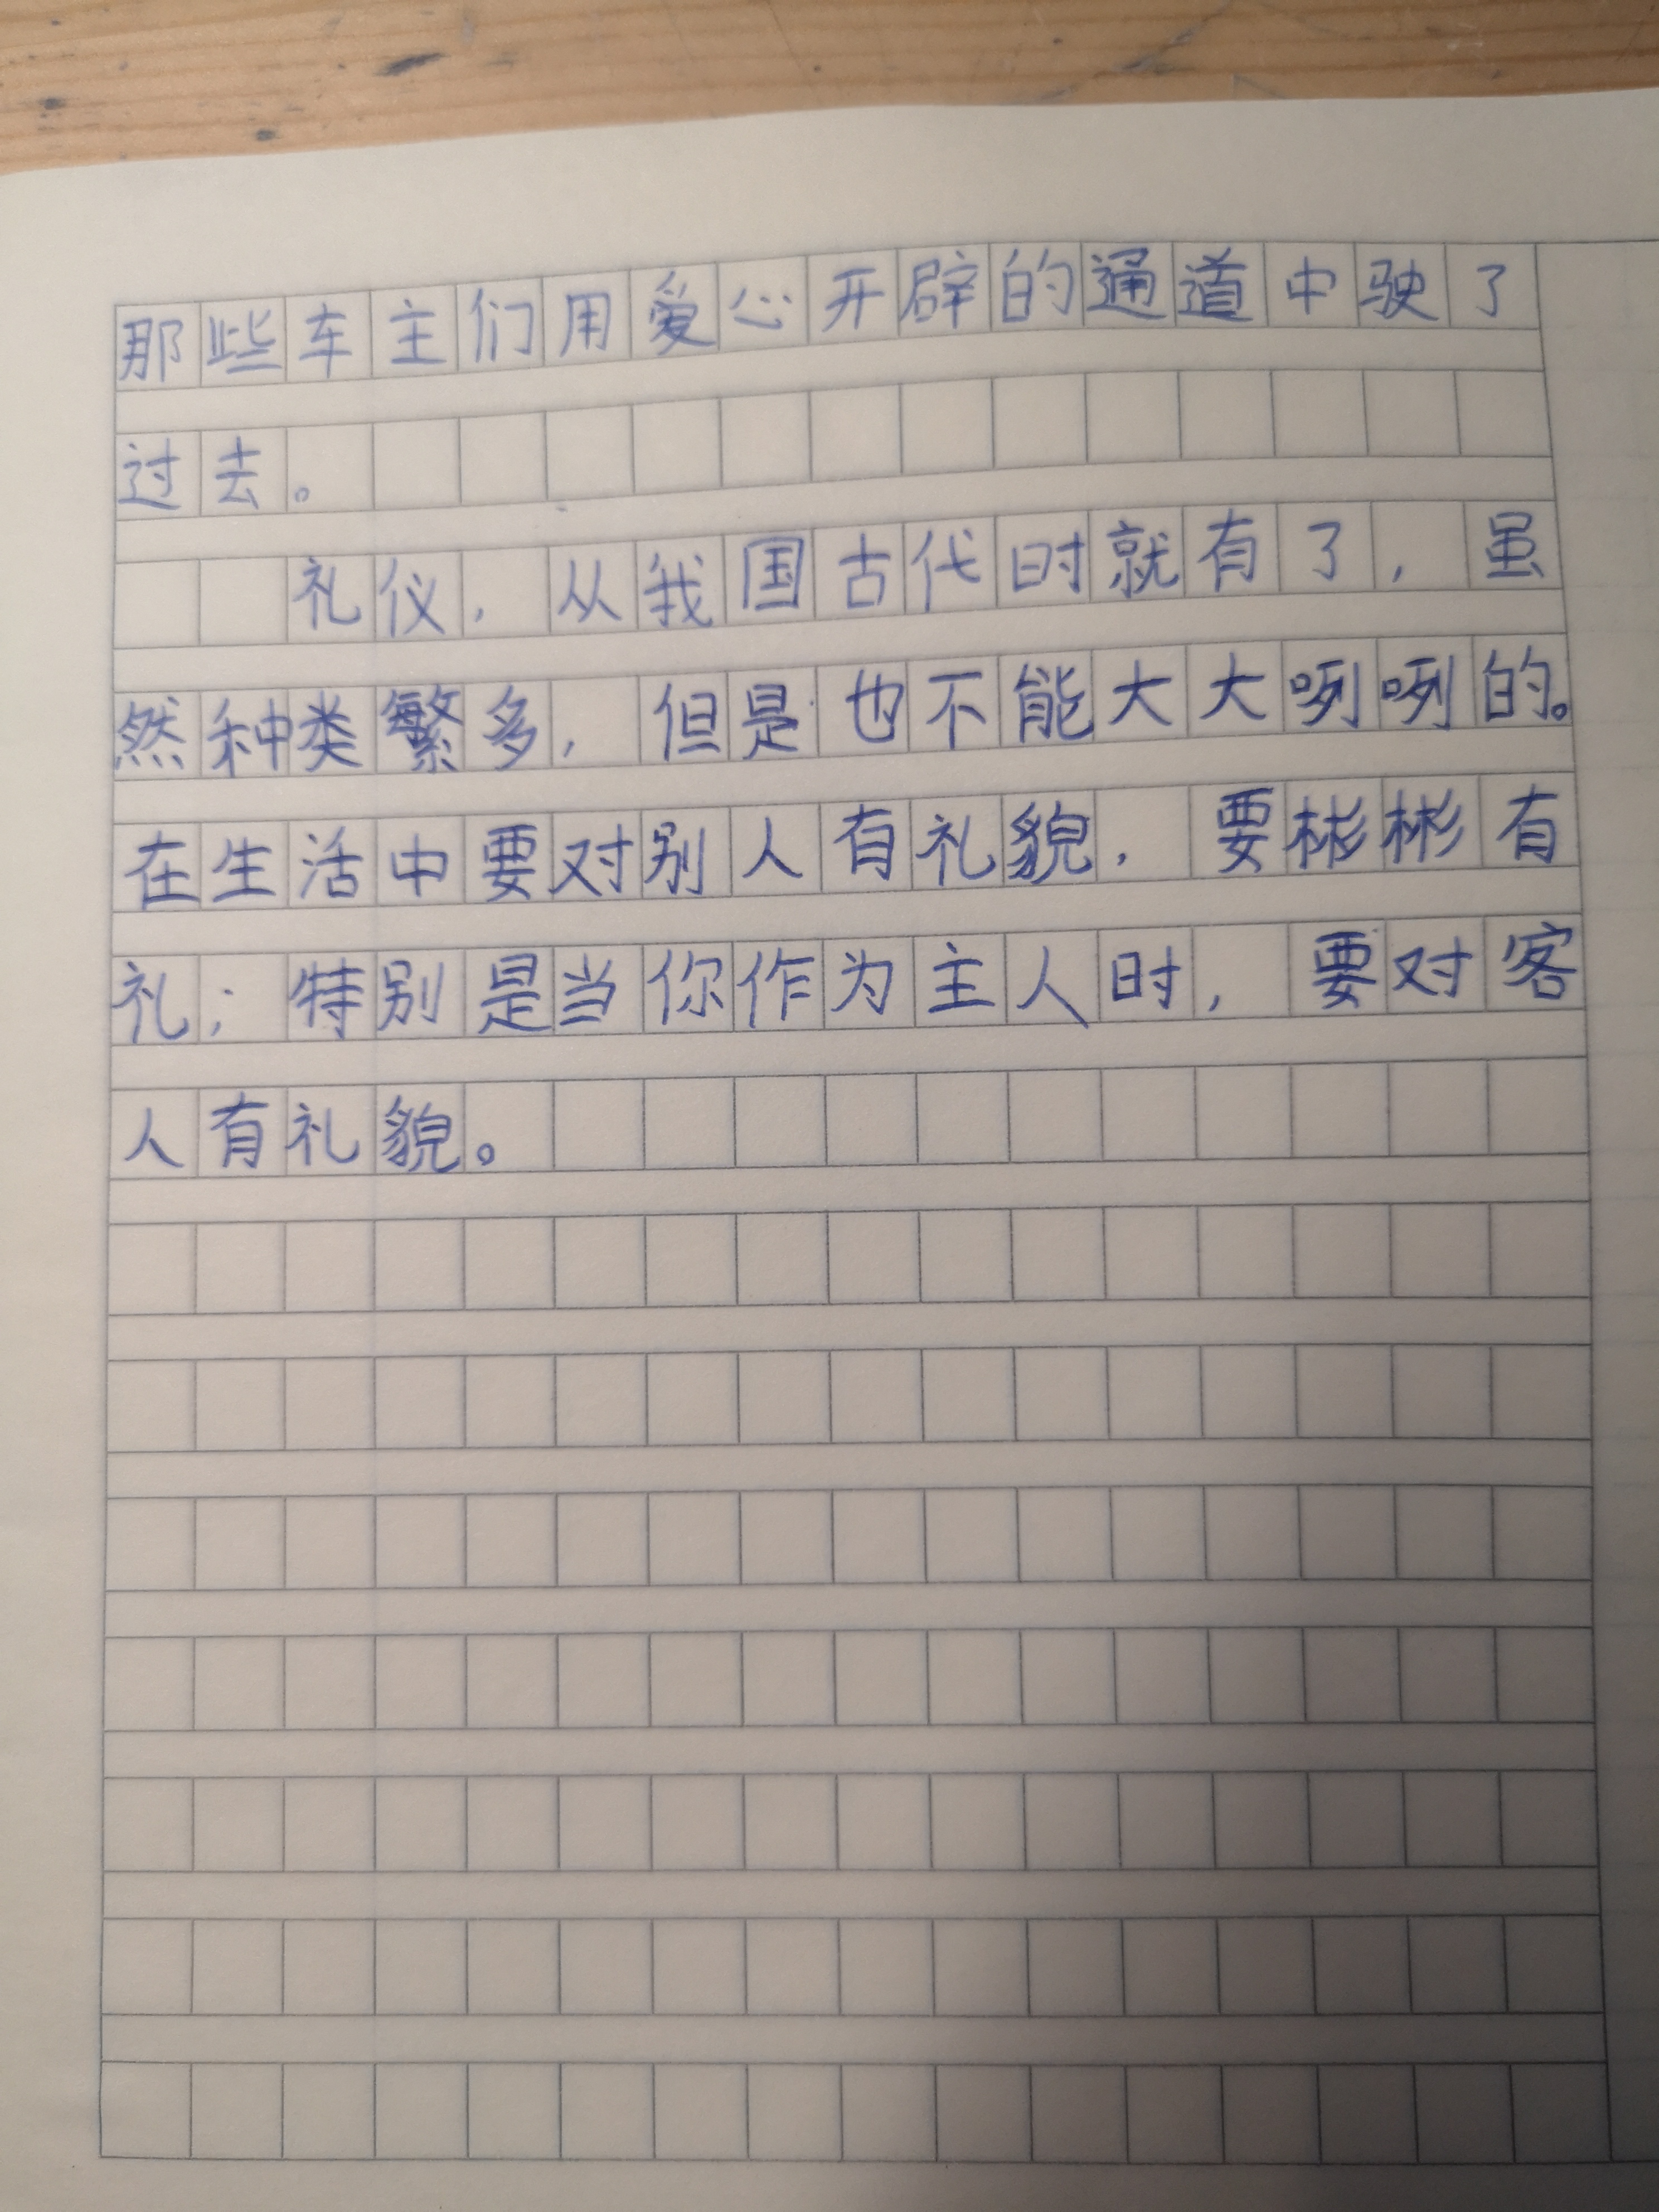 那些车主们用爱心开辟的通道中驶了
过去。
礼仪，从我国古代时就有了，虽
然种类繁多，但是也不能大大咧咧的。
在生活中要对别人有礼貌，要彬彬有
礼；特别是当你作为主人时，要对客
人有礼貌。